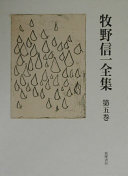 牧野信一全集
第五巻
筑摩書房